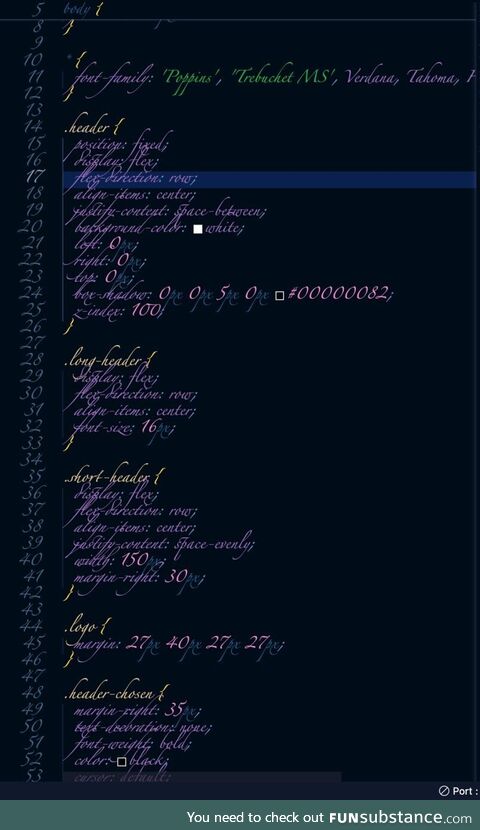 5 body {
8 }
9
10 * {
11 font-family: 'Poppins', 'Trebuchet MS', Verdana, Tahoma,
12 }
13
14 .header {
15 position: fixed;
16 display: flex;
17 flex-direction: row;
18 align-items: center;
19 justify-content: space-between;
20 background-color: white;
21 left: 0px;
22 right: 0px;
23 top: 0px;
24 box-shadow: 0px 0px 5px 0px #00000082;
25 z-index: 100;
26 }
27
28 .long-header {
29 display: flex;
30 flex-direction: row;
31 align-items: center;
32 font-size: 16px;
33 }
34
35 .short-header {
36 display: flex;
37 flex-direction: row;
38 align-items: center;
39 justify-content: space-evenly;
40 width: 150px;
41 margin-right: 30px;
42 }
43
44 .logo {
45 margin: 27px 40px 27px 27px;
46 }
47
48 .header-chosen {
49 margin-right: 35px;
50 text-decoration: none;
51 font-weight: bold;
52 color: black;
53 cursor: default;
Port :
You need to check out FUNsubstance.com